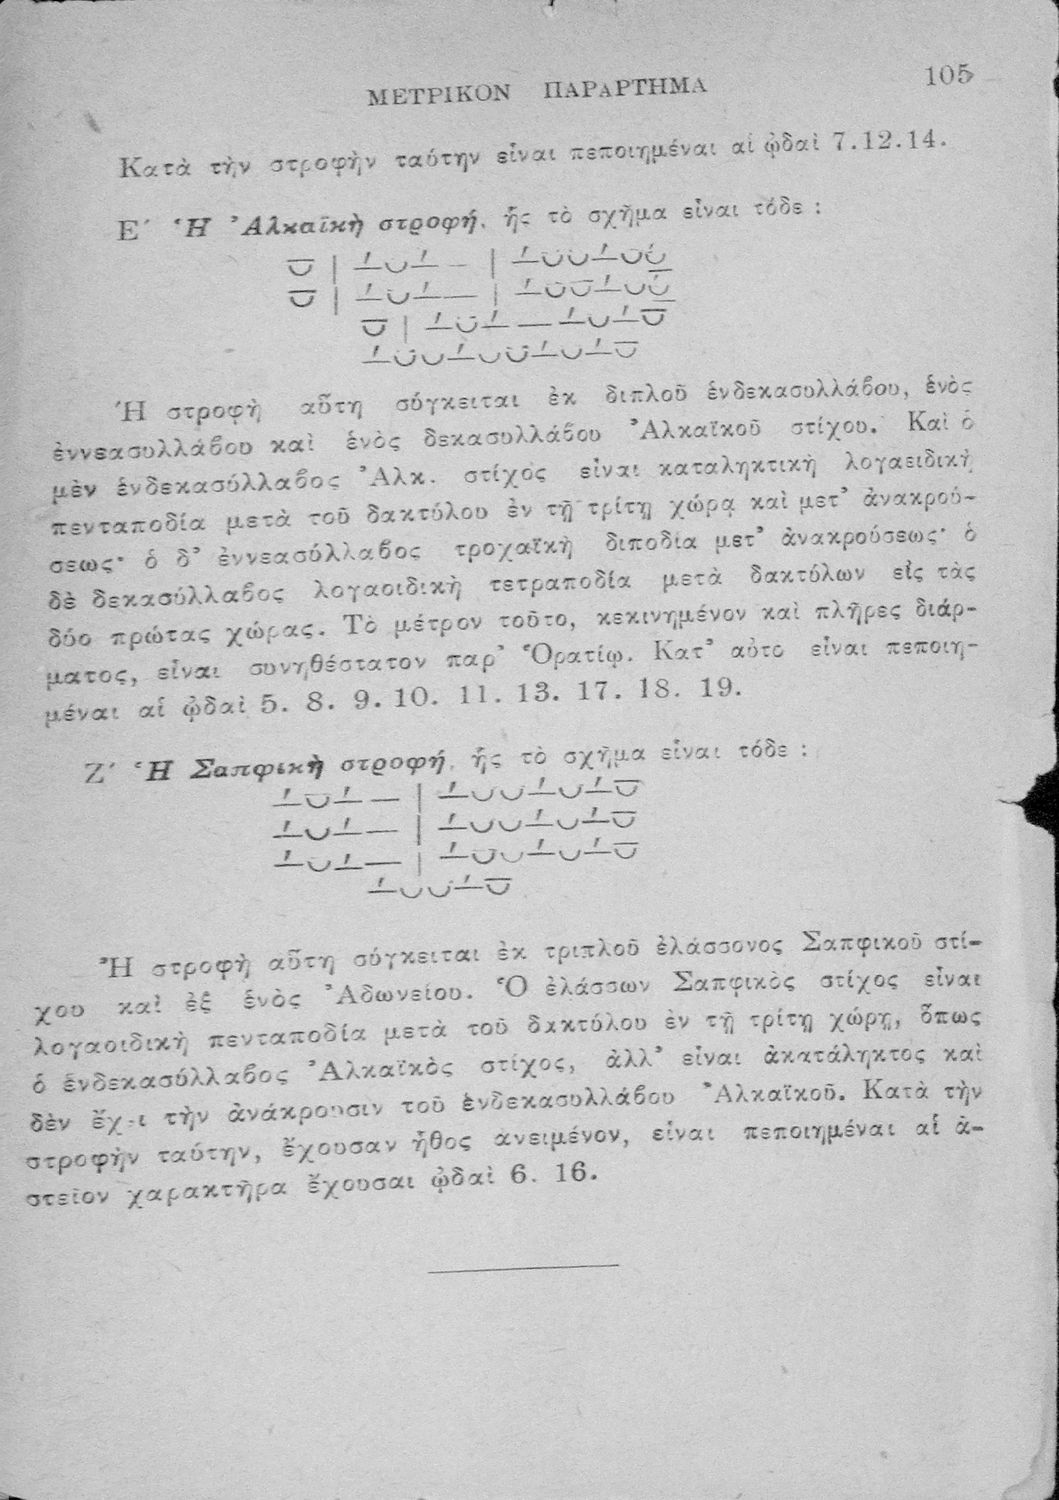 ΜΕΤΡΙΚΟΝ ΠΑΡΑΡΤΗΜΑ 105
Κατὰ τὴν στροφὴν ταύτην εἶναι πεποιημέναι αἱ ᾠδαὶ 7.12.14.
Ε´ Ἡ Ἀλκαϊκὴ στροφή, ἧς τὸ σχῆμα εἶναι τόδε :
Ἡ στροφὴ αὕτη σύγκειται ἐκ διπλοῦ ἑνδεκασυλλάβου, ἑνὸς
ἐννεασυλλάβου καὶ ἑνὸς δεκασυλλάβου Ἀλκαϊκοῦ στίχου. Καὶ ὁ
μὲν ἑνδεκασύλλαβος Ἀλκ. στίχος εἶναι καταληκτικὴ λογαειδικὴ
πενταποδία μετὰ τοῦ δακτύλου ἐν τῇ τρίτῃ χώρᾳ καὶ μετ’ ἀνακρού-
σεως· ὁ δ’ ἐννεασύλλαβος τροχαϊκὴ διποδία μετ’ ἀνακρούσεως· ὁ
δὲ δεκασύλλαβος λογαοιδικὴ τετραποδία μετὰ δακτύλων εἰς τὰς
δύο πρώτας χώρας. Τὸ μέτρον τοῦτο, κεκινημένον καὶ πλῆρες διάρ-
ματος, εἶναι συνηθέστατον παρ’ Ὁρατίῳ. Κατ’ αὐτὸ εἶναι πεποιη-
μέναι αἱ ᾠδαὶ 5. 8. 9. 10. 11. 13. 17. 18. 19.
Ζ´ Ἡ Σαπφικὴ στροφή, ἧς τὸ σχῆμα εἶναι τόδε :
Ἡ στροφὴ αὕτη σύγκειται ἐκ τριπλοῦ ἐλάσσονος Σαπφικοῦ στί-
χου καὶ ἐξ ἑνὸς Ἀδωνείου. Ὁ ἐλάσσων Σαπφικὸς στίχος εἶναι
λογαοιδικὴ πενταποδία μετὰ τοῦ δακτύλου ἐν τῇ τρίτῃ χώρῃ, ὅπως
ὁ ἑνδεκασύλλαβος Ἀλκαϊκὸς στίχος, ἀλλ’ εἶναι ἀκατάληκτος καὶ
δὲν ἔχει τὴν ἀνάκρουσιν τοῦ ἑνδεκασυλλάβου Ἀλκαϊκοῦ. Κατὰ τὴν
στροφὴν ταύτην, ἔχουσαν ἦθος ἀνειμένον, εἶναι πεποιημέναι αἱ ἀ-
στεῖον χαρακτῆρα ἔχουσαι ᾠδαὶ 6. 16.